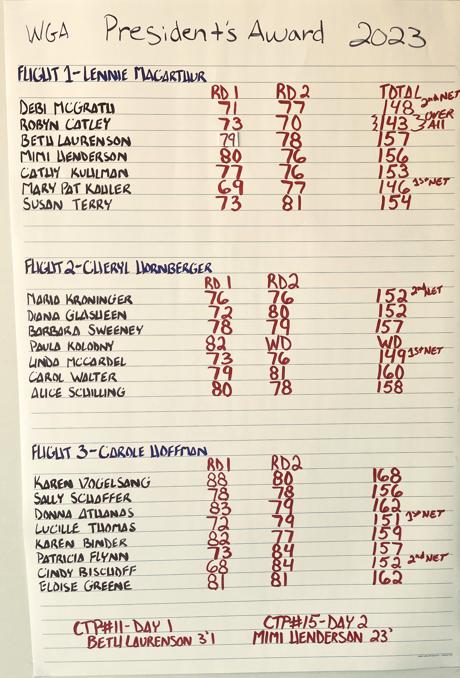 WGA President's Award 2023
FLIGHT 1-LENNIE MACARTHUR
RD 1 RD 2 TOTAL
DEBI MCGRATH 71 77 148 2nd NET
ROBYN CATLEY 73 70 143 OVER ALL
BETH LAURENSON 79 78 157
MIMI HENDERSON 80 76 156
CATHY KUHLMAN 77 76 153
MARY PAT KOHLER 69 77 146 1st NET
SUSAN TERRY 73 81 154
FLIGHT 2-CHERYL HORNBERGER
RD 1 RD2
MARIA KRONINGER 76 76 152 2nd NET
DIANA GLASHEEN 72 80 152
BARBARA SWEENEY 78 79 157
PAULA KOLODNY 82 WD WD
LINDA MCCARDEL 73 76 149 1st NET
CAROL WALTER 79 81 160
ALICE SCHILLING 80 78 158
FLIGHT 3-CAROLE HOFFMAN
RD1 RD2
KAREN VOGELSANG 88 80 168
SALLY SCHAFFER 78 78 156
DONNA ATHANAS 83 79 162
LUCILLE THOMAS 72 79 151 1st NET
KAREN BINDER 82 77 159
PATRICIA FLYNN 73 84 157
CINDY BISCHOFF 68 84 152 2nd NET
ELOISE GREENE 81 81 162
CTP#11-DAY 1 CTP#15-DAY 2
BETH LAURENSON 3'1 MIMI HENDERSON 23'